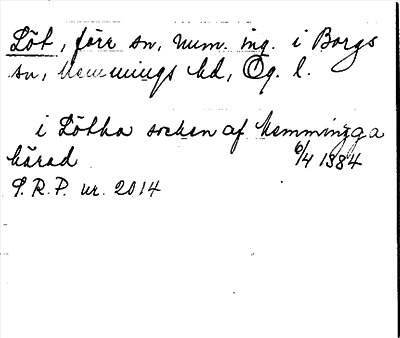 Löt, förr sn, num. ing. i Borgs
sn, Memmings hd, Ög. l.
i Lötha socken af Memmingga
härad 6/4 1384
S.R.P. nr. 2014